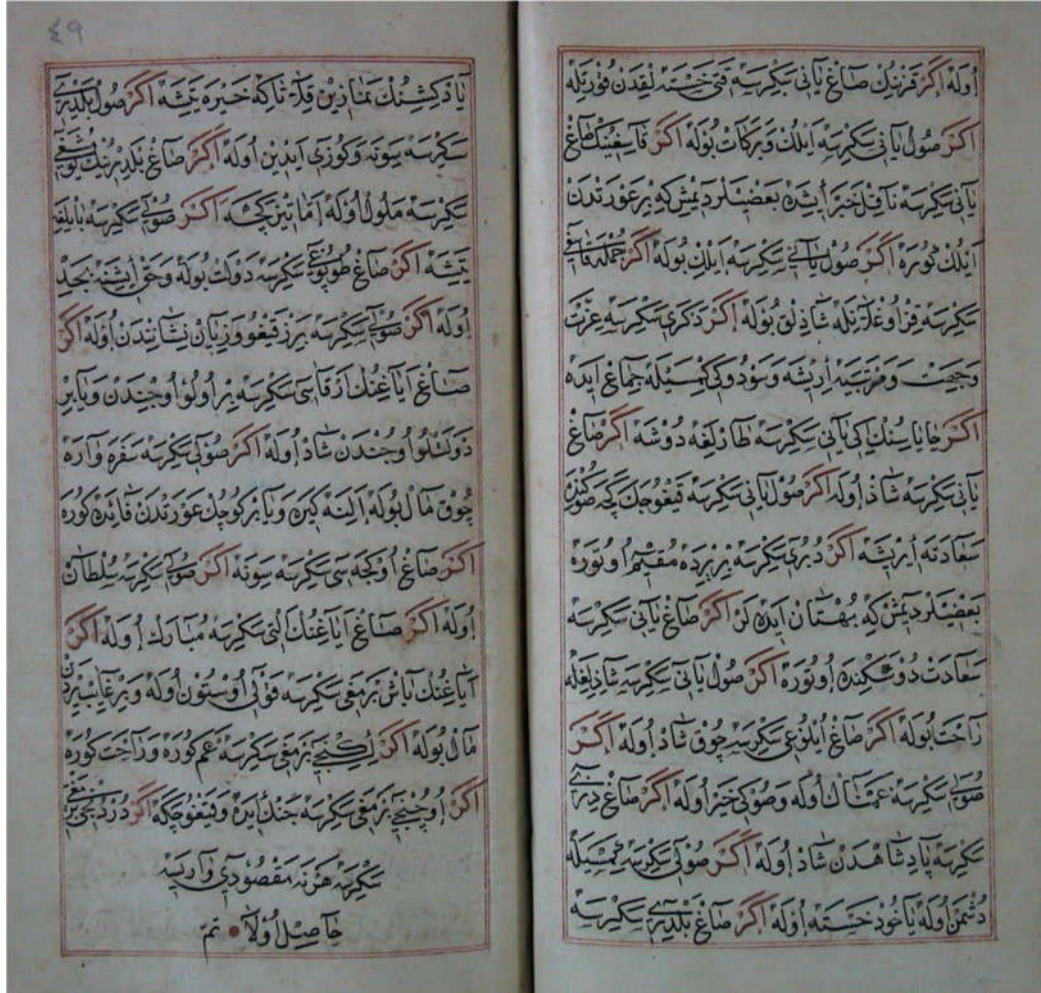 اوله اكر قرنك صاغ يانى سكرسه قتى خسته لقدن قورتله
اكر صول يانى سكرسه ايلك وبركات بوله اكر قاسغينك صاغ
يانى سكرسه ناقل خبر ايشده بعضيلر ديمش كه بر عورتدن
ايلك كوره اكر صول يانى سكرسه ايلك بوله اكر جمله قاسيغى
سكرسه قز اوغلانله شاذلق بوله اكر ذكرى سكرسه عزت
وجهت ومرتبه ايريشه وسودوكى كمسيله جماع ايده
اكر خاياسنك ايكى يانى سكرسه طارلغه دوشه اكر صاغ
يانى سكرسه شاذ اوله اكر صول يانى سكرسه قيغو چك كچه صوكنده
سعادته ايريشه اكر دبرى سكرسه بر يرده مقيم اوتوره
بعضيلر ديمش كه بهتان ايده لر اكر صاغ يانى سكرسه
سعادت دوشكنده اوتوره اكر صول يانى سكرسه شاذلغله
راحت بوله اكر صاغ اويلوغى سكرسه چوق شاذ اوله اكر
صولى سكرسه غمناك اوله وصوكى خير اوله اكر صاغ ديزى
سكرسه پادشاهدن شاذ اوله اكر صولى سكرسه كمسيله
دشمن اوله ياخود خسته اوله اكر صاغ بلديرى سكرسه
٤٩
ياد كشنك نمازين قلا تاكه خيره يتشه اكر صول بلديرى
سكرسه سونه وكوزى ايدين اوله اكر صاغ بلديرينك يومشغى
سكرسه ملول اوله اما تيز كچه اكر صولى سكرسه بايلغه
يتشه اكر صاغ طوپوغى سكرسه دولت بوله وحق ايشنه بجد
اوله اكر صولى سكرسه برز قيغو وزيان نشانندن اوله اكر
صاغ اياغنك ارقاسى سكرسه بر اولو اوجندن ويا بر
دولتلو اوجندن شاذ اوله اكر صولى سكرسه سفره واره
چوق مال بوله النه كيره ويا بر كوچك عورتدن فائده كوره
اكر صاغ اوكجه سى سكرسه سونه اكر صولى سكرسه سلطان
اوله اكر صاغ اياغنك التى سكرسه مبارك اوله اكر
اياغنك باش برمغى سكرسه قولى اوستون اوله وبر غايب يردن
مال بوله اكر ايكنجى برمغى سكرسه غم كوره وراحت كوره
اكر اوچنجى برمغى سكرسه جنك ايده وقيغو چكه اكر دردنجى برمغى
سكرسه هر نه مقصودى واريسه
حاصل اولا تم